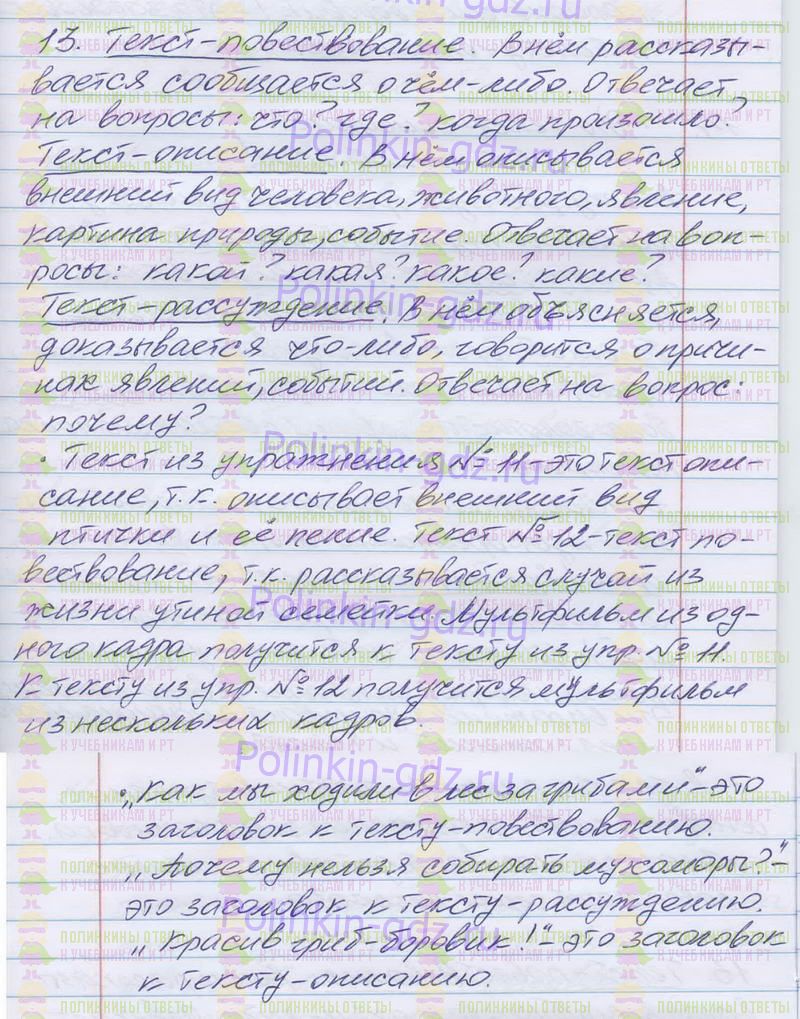 13. Текст-повествование. В нём рассказы-
вается сообщается о чём-либо. Отвечает
на вопросы: что? где? когда произошло?
Текст-описание. В нём описывается
внешний вид человека, животного, явление,
картина природы, событие. Отвечает на воп-
росы: какой? какая? какое? какие?
Текст-рассуждение. В нём объясняется,
доказывается что-либо, говорится о причи-
нах явлений, событий. Отвечает на вопрос:
почему?
· Текст из упражнения № 11-это текст опи-
сание, т.к. описывает внешний вид
птички и её пение. Текст № 12-текст по-
вествование, т.к. рассказывается случай из
жизни утиной семейки. Мультфильм из од-
ного кадра получится к тексту из упр. № 11.
К тексту из упр. № 12 получится мультфильм
из нескольких кадров.
· „Как мы ходили в лес за грибами"-это
заголовок к тексту-повествованию.
„Почему нельзя собирать мухоморы?"-
это заголовок к тексту-рассуждению.
„Красив гриб-боровик!"- это заголовок
к тексту-описанию.
Polinkin-gdz.ru
Polinkin-gdz.ru
Polinkin-gdz.ru
Polinkin-gdz.ru
Polinkin-gdz.ru
Polinkin-gdz.ru
Polinkin-gdz.ru
ПОЛИНКИНЫ ОТВЕТЫ
К УЧЕБНИКАМ И РТ